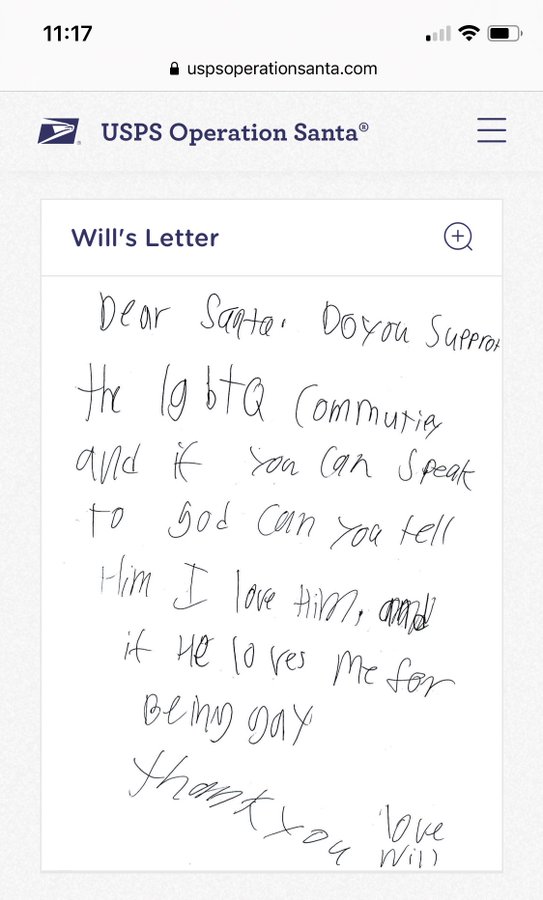 11:17
uspsoperationsanta.com
USPS Operation Santa®
Will's Letter
Dear Santa. Do you Supprot
the lgbtQ Commutiey
and if you can speak
to god can you tell
Him I love Him, and
if He loves me for
Being gay
thank you love
Will